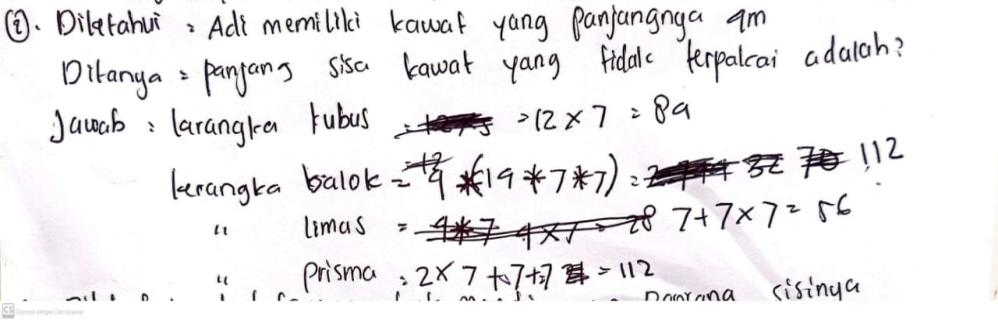 ②. Diketahui : Adi memiliki kawat yang panjangnya 4m
Ditanya = panjang sisa kawat yang tidak terpakai adalah?
Jawab : larangka kubus = 12 x 7 = 84
kerangka balok = 4 * (14 * 7 * 7) = 112
" limas = 7 + 7 x 7 = 56
" Prisma = 2 x 7 + 7 + 7 = 112
sisinya
CS